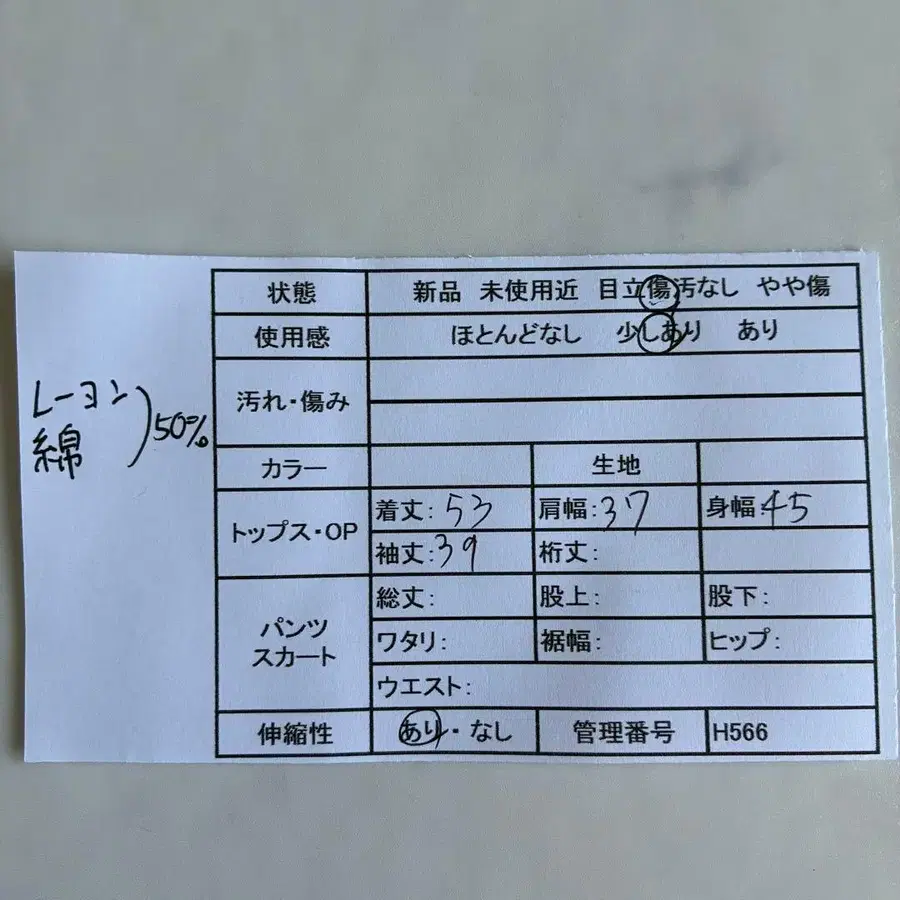 状態 新品 未使用近 目立傷汚なし やや傷
使用感 ほとんどなし 少しあり あり
レーヨン
綿
50%
汚れ・傷み
カラー 生地
トップス・OP
着丈:53 肩幅:37 身幅:45
袖丈:39 裄丈:
パンツ
スカート
総丈: 股上: 股下:
ワタリ: 裾幅: ヒップ:
ウエスト:
伸縮性 あり・なし 管理番号 H566